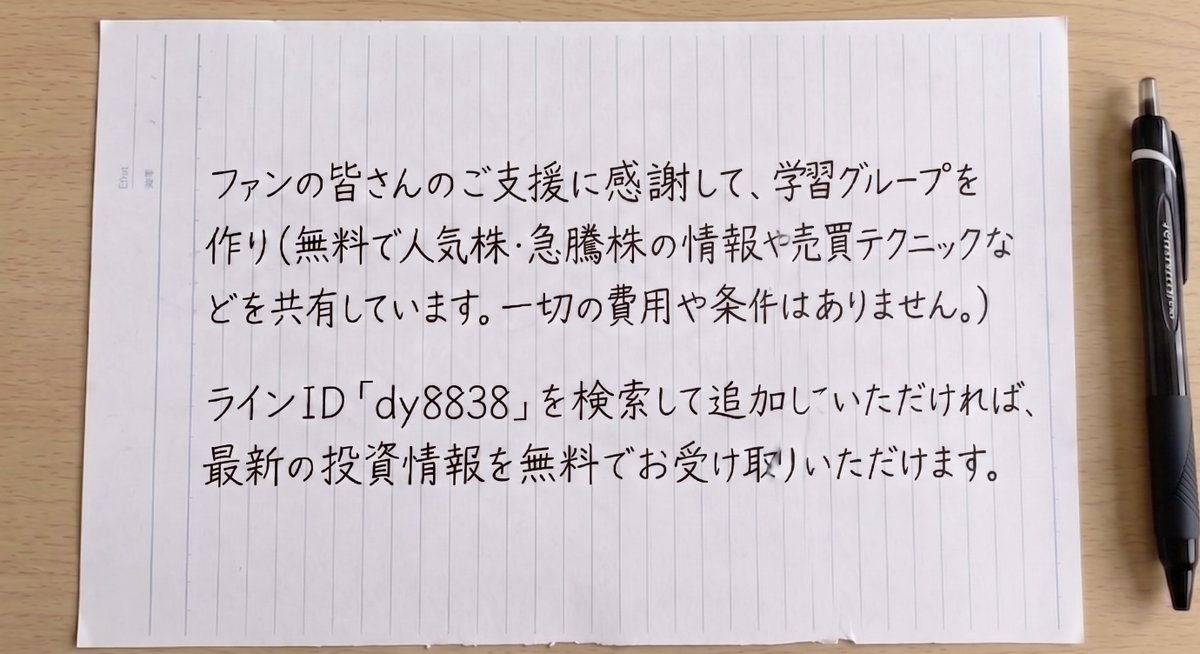 ファンの皆さんのご支援に感謝して、学習グループを
作り(無料で人気株・急騰株の情報や売買テクニックな
どを共有しています。一切の費用や条件はありません。)
ラインID「dy8838」を検索して追加していただければ、
最新の投資情報を無料でお受け取りいただけます。